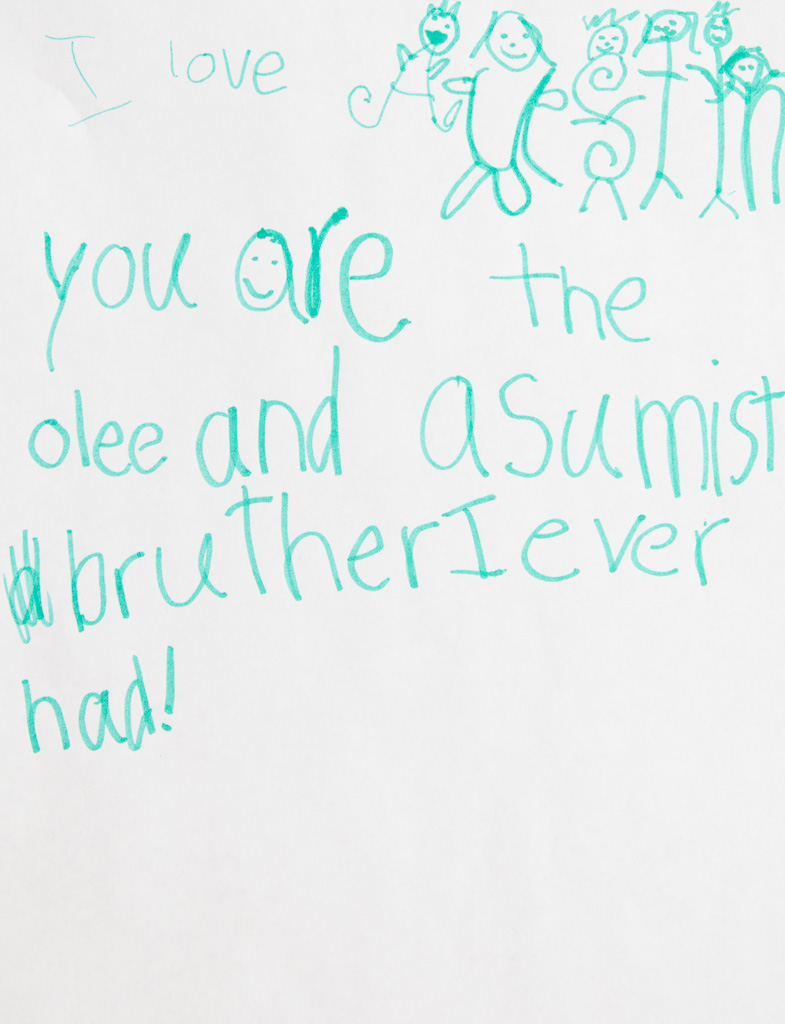 I love Austin
you are the
olee and asumist
bruther I ever
had!